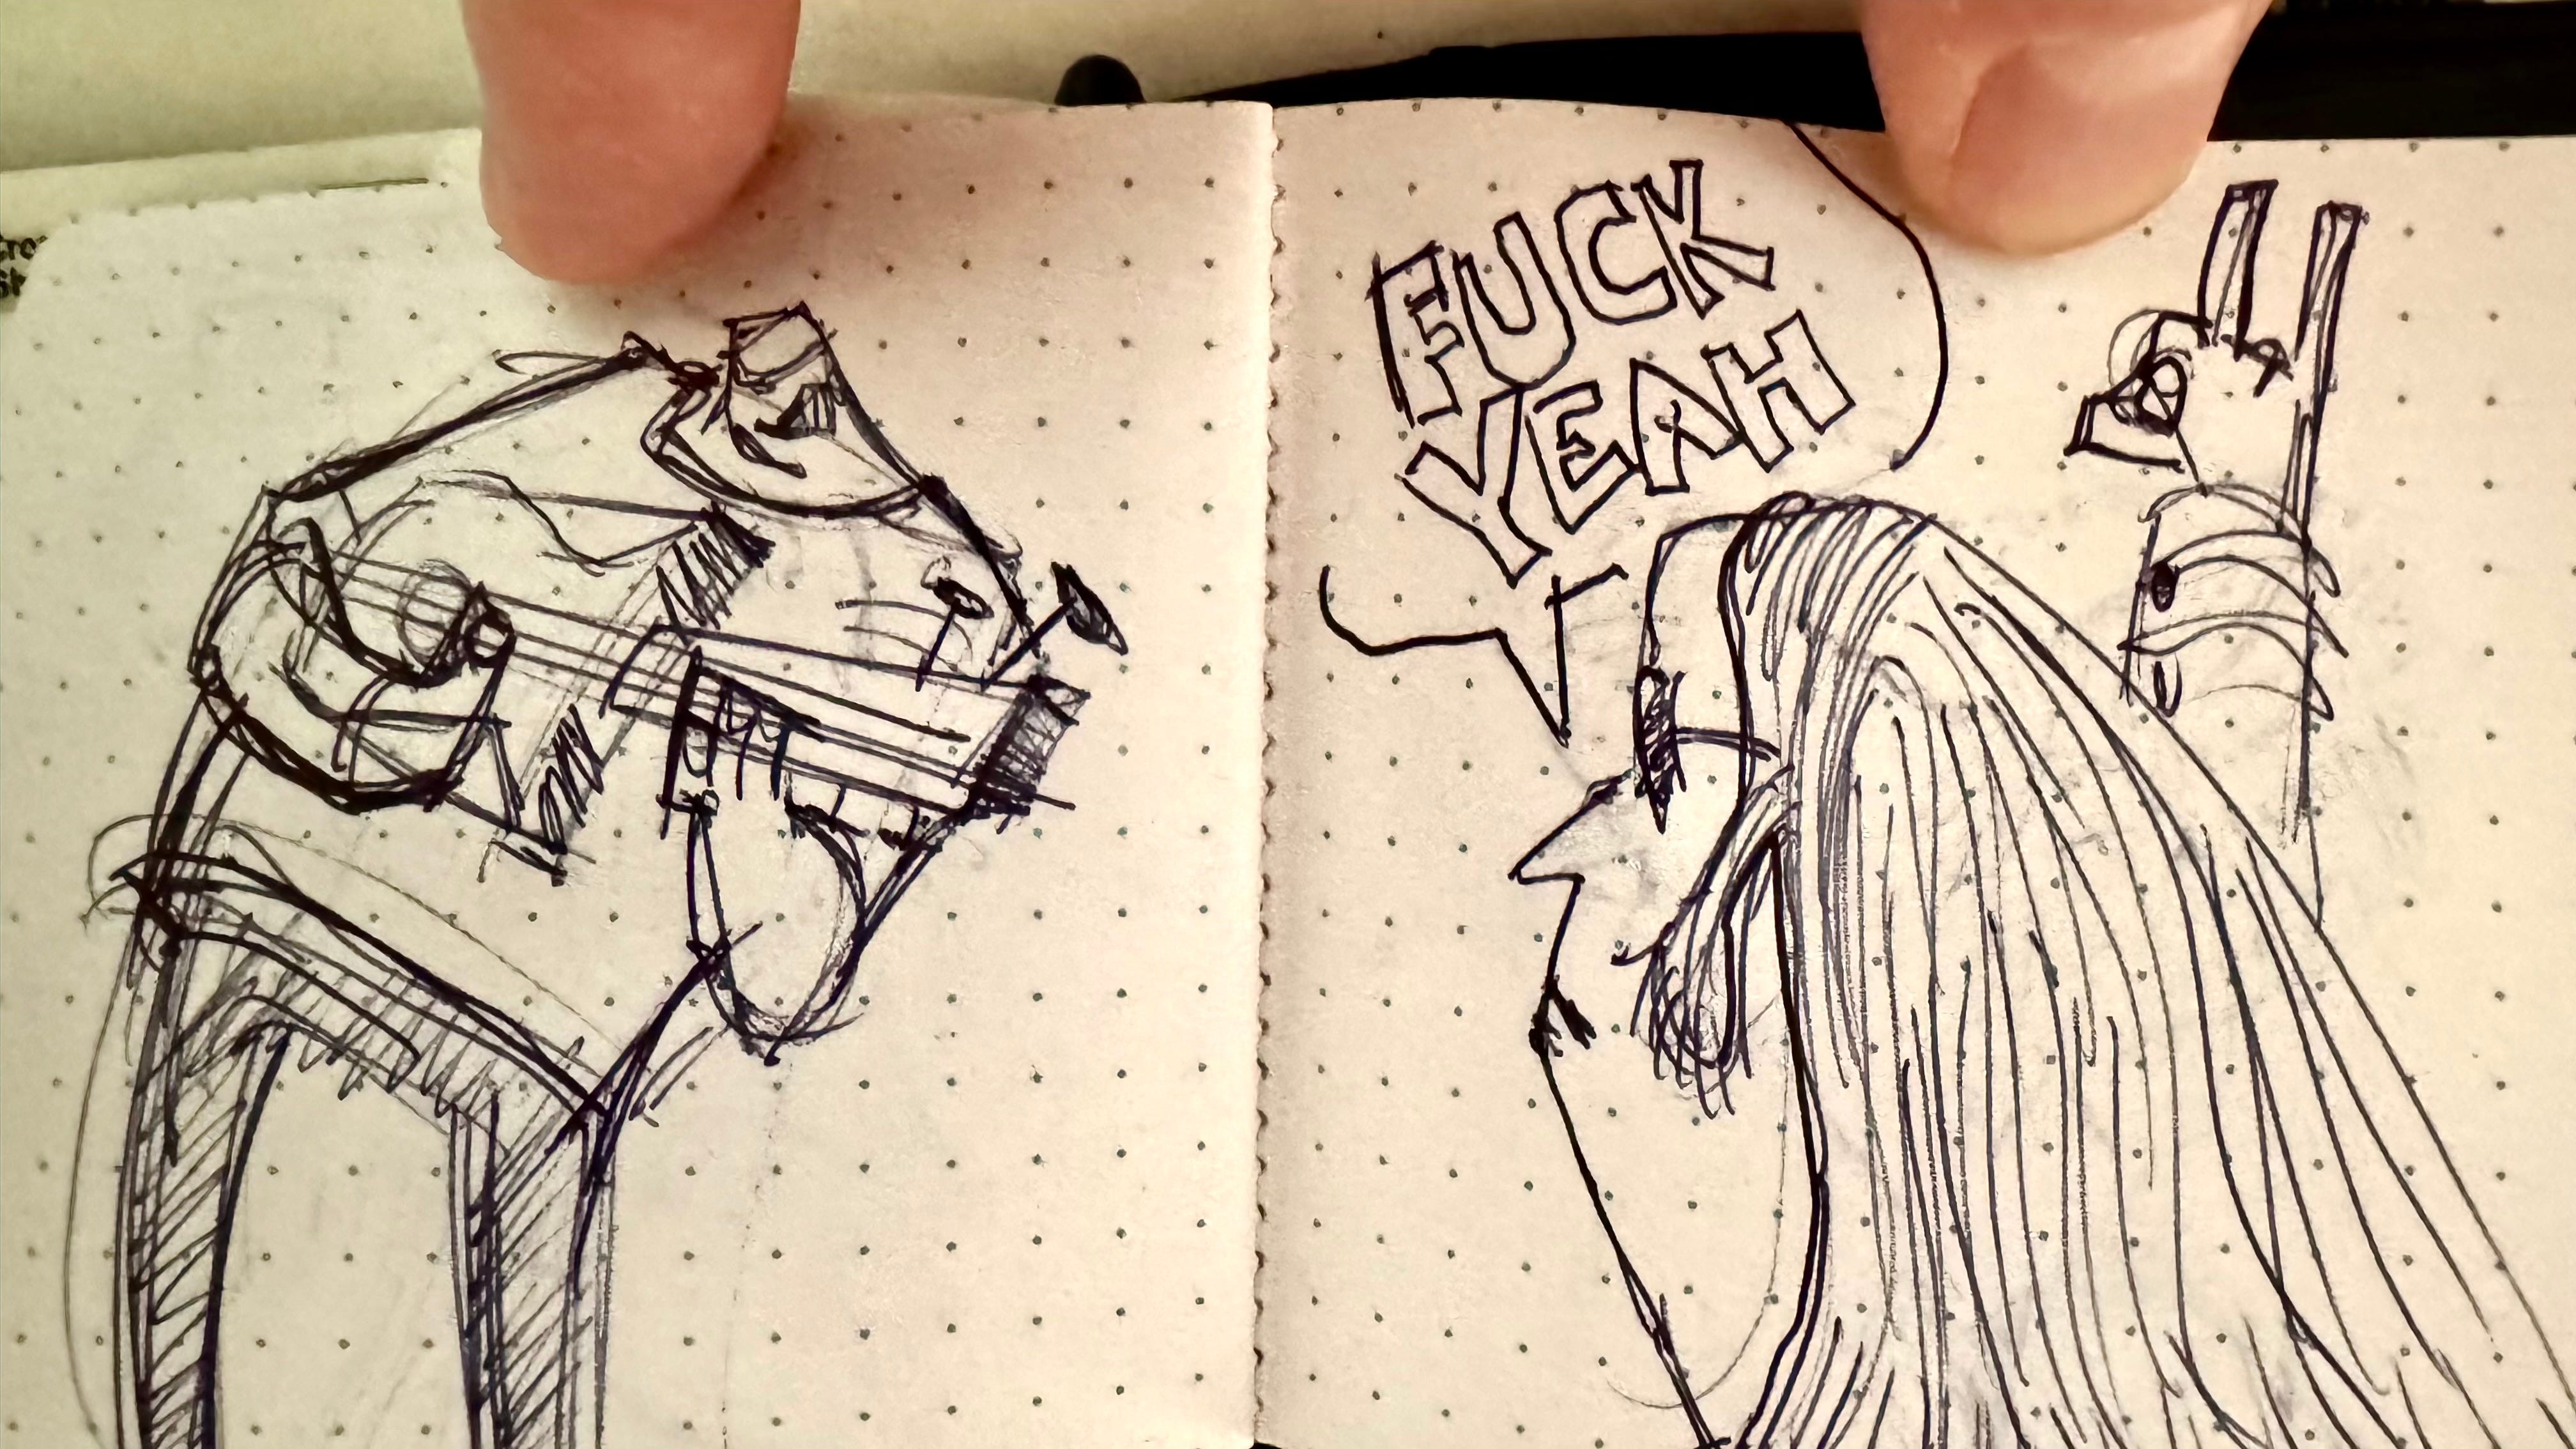 FUCK
YEAH